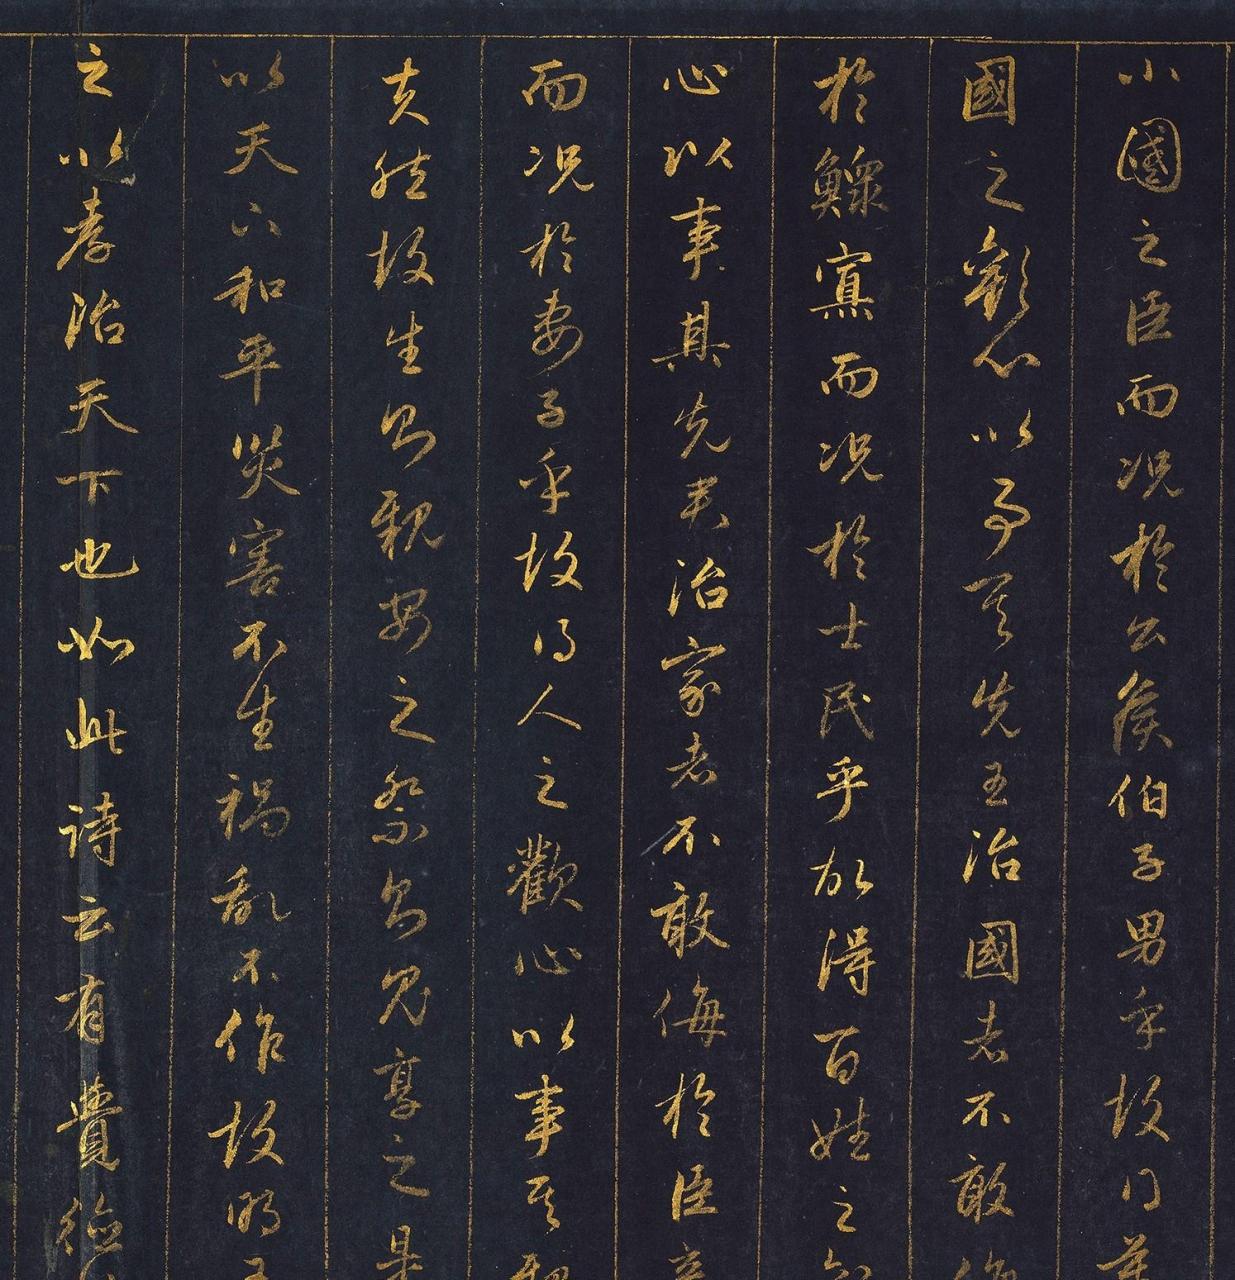 小國之臣而況於公侯伯子男乎故得萬
國之歡心以事其先王治國者不敢侮
於鰥寡而況於士民乎故得百姓之歡
心以事其先君治家者不敢侮於臣妾
而況於妻子乎故得人之歡心以事其親
夫然故生則親安之祭則鬼享之是
以天下和平災害不生禍亂不作故明王
之以孝治天下也如此詩云有覺德